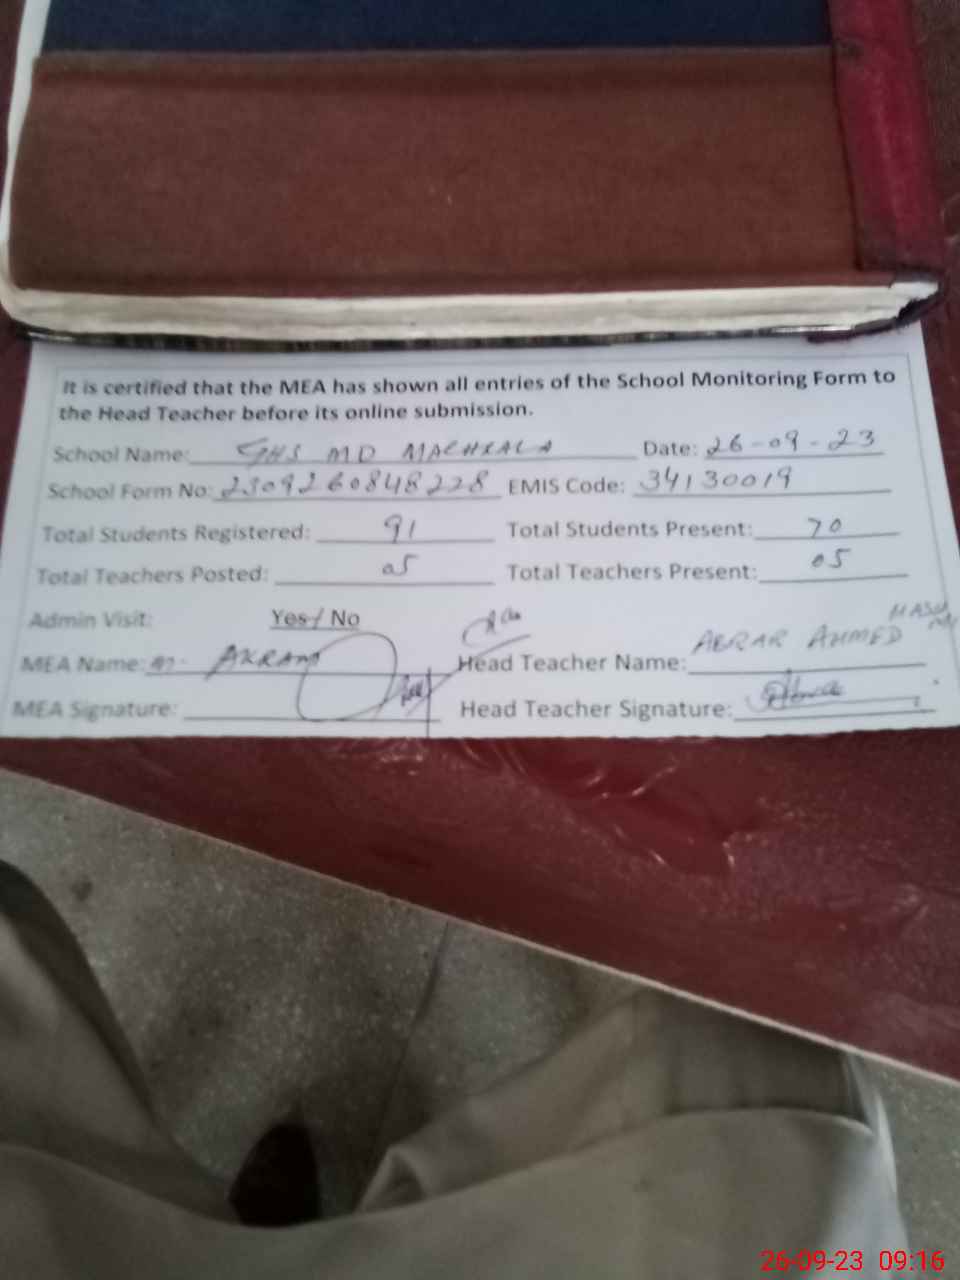 It is certified that the MEA has shown all entries of the School Monitoring Form to
the Head Teacher before its online submission.
School Name: GHS MD MACHRALA Date: 26-09-23
School Form No: 2309260848228 EMIS Code: 34130019
Total Students Registered: 91 Total Students Present: 70
Total Teachers Posted: 05 Total Teachers Present: 05
Admin Visit: Yes / No
MEA Name: AKRAM Head Teacher Name: ABRAR AHMED
MEA Signature: Head Teacher Signature:
26-09-23 09:16